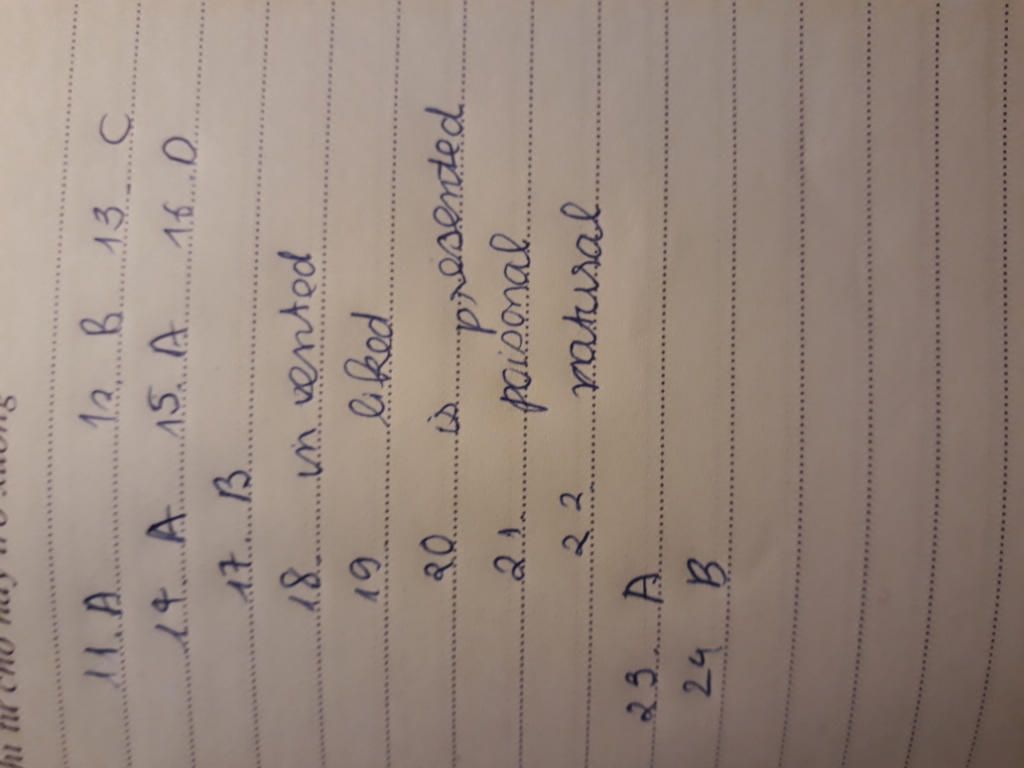 11. A 12. B 13 C
14 A 15. A 16 D
17 B
18 invented
19 liked
20 is presented
21. poisonal
22 natural
23 A
24 B